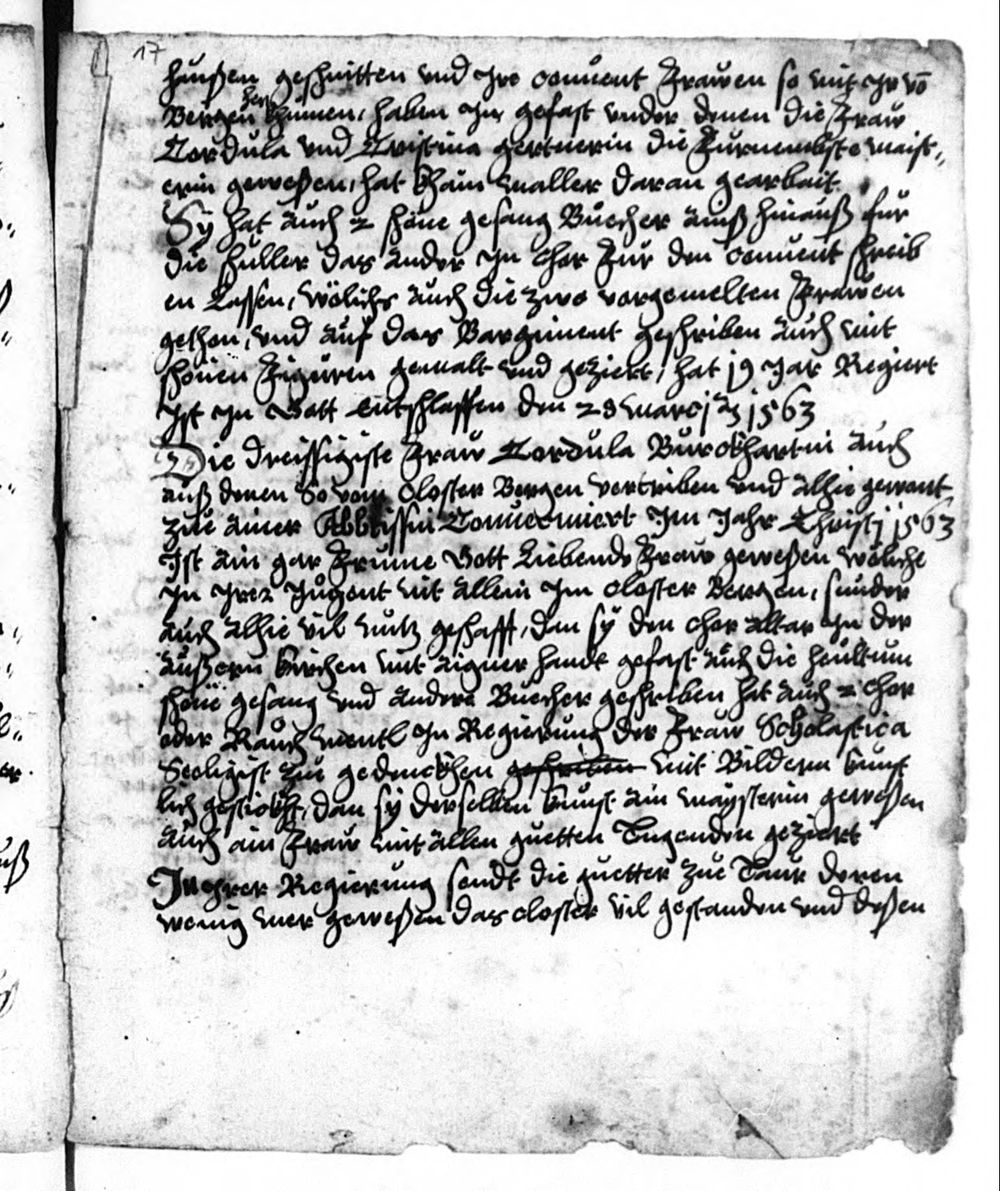 17
haußen geschnitten und Ire Convent Frawen so mit Ir vō
Bergen her khumen, haben In gefast under denen die Fraw
Cordula und Cristina gertnerin die Furnembste maist„
erin geweßen, hat khain maller daran gearbait.
Sy hat auch 2 schöne gesang Buecher ains hinauß fur
die schuller das ander In Chor Fur den Convent schreib
en Lassen, wölichs auch die zwo vorgemelten Frawen
gethon, und auf das Bargiment geschriben auch mit
schönen Figuren gemalt und geziert, hat 19 Jar Regiert
Ist In Gott Entschlaffen den 28 marcj A̅ 1563
Die dreissigiste Fraw Cordula Burckhartin auch
auß denen So vom Closter Bergen vertriben und alhie gewont,
zue ainer Abbtissin Confirmiert Im Jahr Christj 1563
Ist ain gar Frume Gott Liebende Fraw geweßen wöliche
In Irer Jugent nit allein Im Closter Bergen, sunder
auch alhie vil nutz geschafft, dan sy den Chor altar In der
äußern Kirchen mit aigner handt gefast auch die heultum
schöne gesang und andere Buecher geschriben hat auch 2 Chor
oder Rauch mentl In Regierung der Fraw Scholastica
Seeligist zue gedenckhen geschriben mit Bildern kunst
lich gestickht, dan sy derselben kunst ain maysterin geweßen
auch ain Fraw mit allen guetten Tugenden geziert
In Ihrer Regierung sendt die guetter zue Taur deren
wenig mer geweßen das Closter vil gestanden und deßen